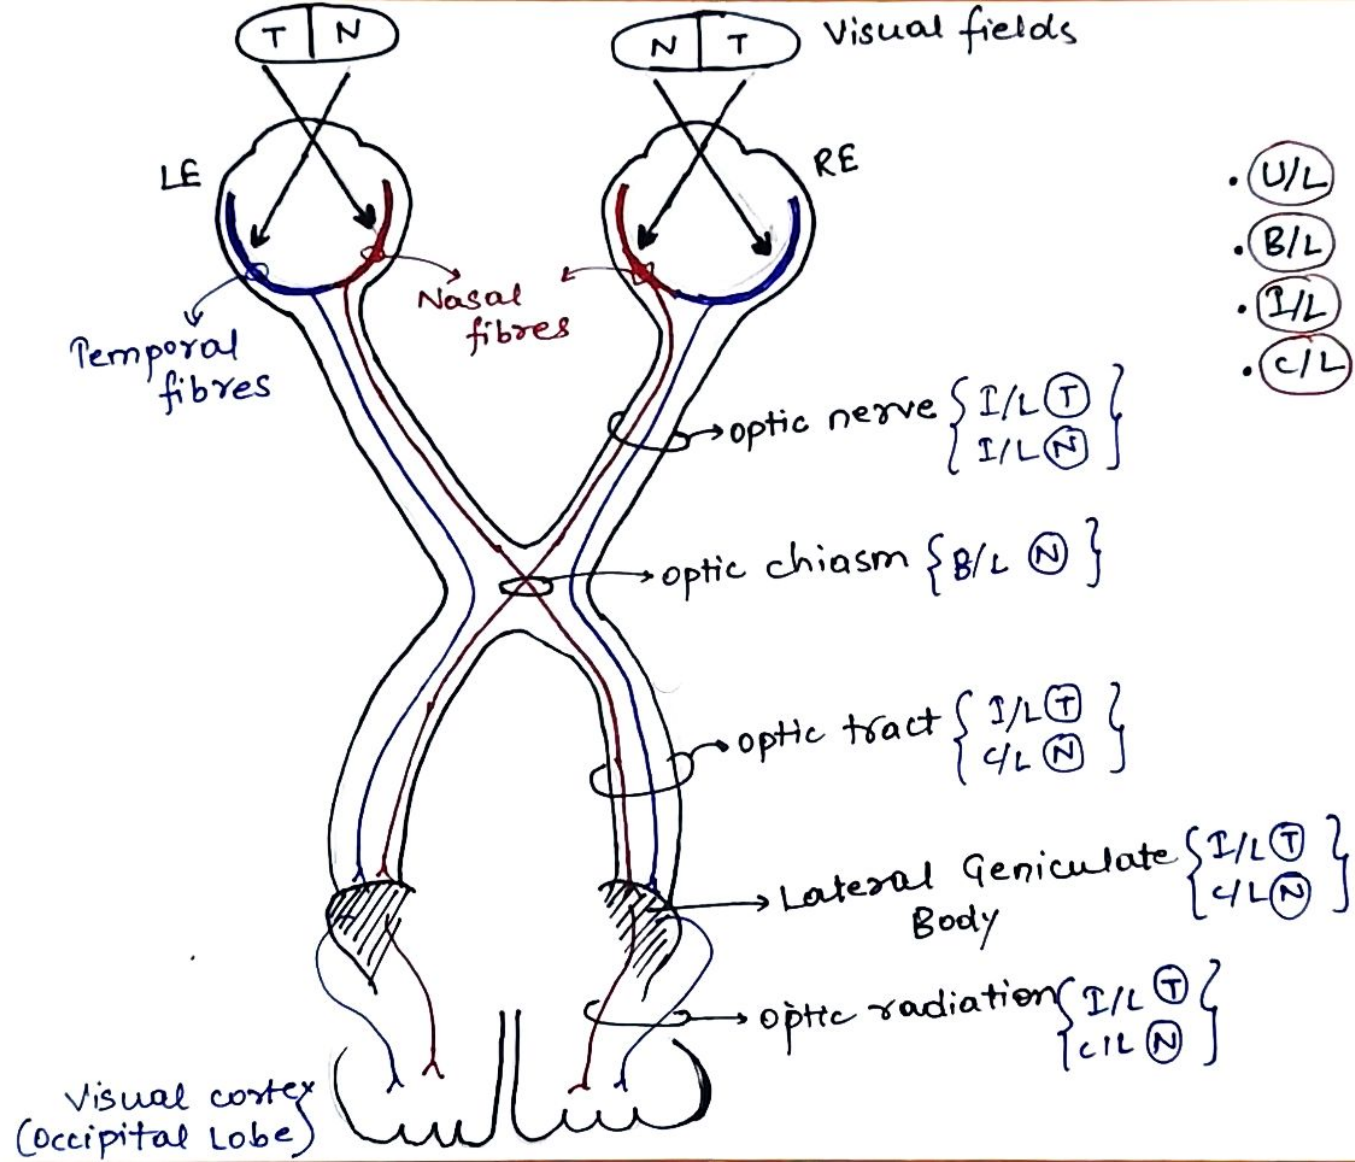 T N
N T
Visual fields
LE
RE
U/L
B/L
I/L
C/L
Nasal
fibres
Temporal
fibres
optic nerve { I/L T }
{ I/L N }
optic chiasm { B/L N }
optic tract { I/L T }
{ C/L N }
Lateral Geniculate { I/L T }
Body { C/L N }
optic radiation { I/L T }
{ C/L N }
Visual cortex
(Occipital Lobe)